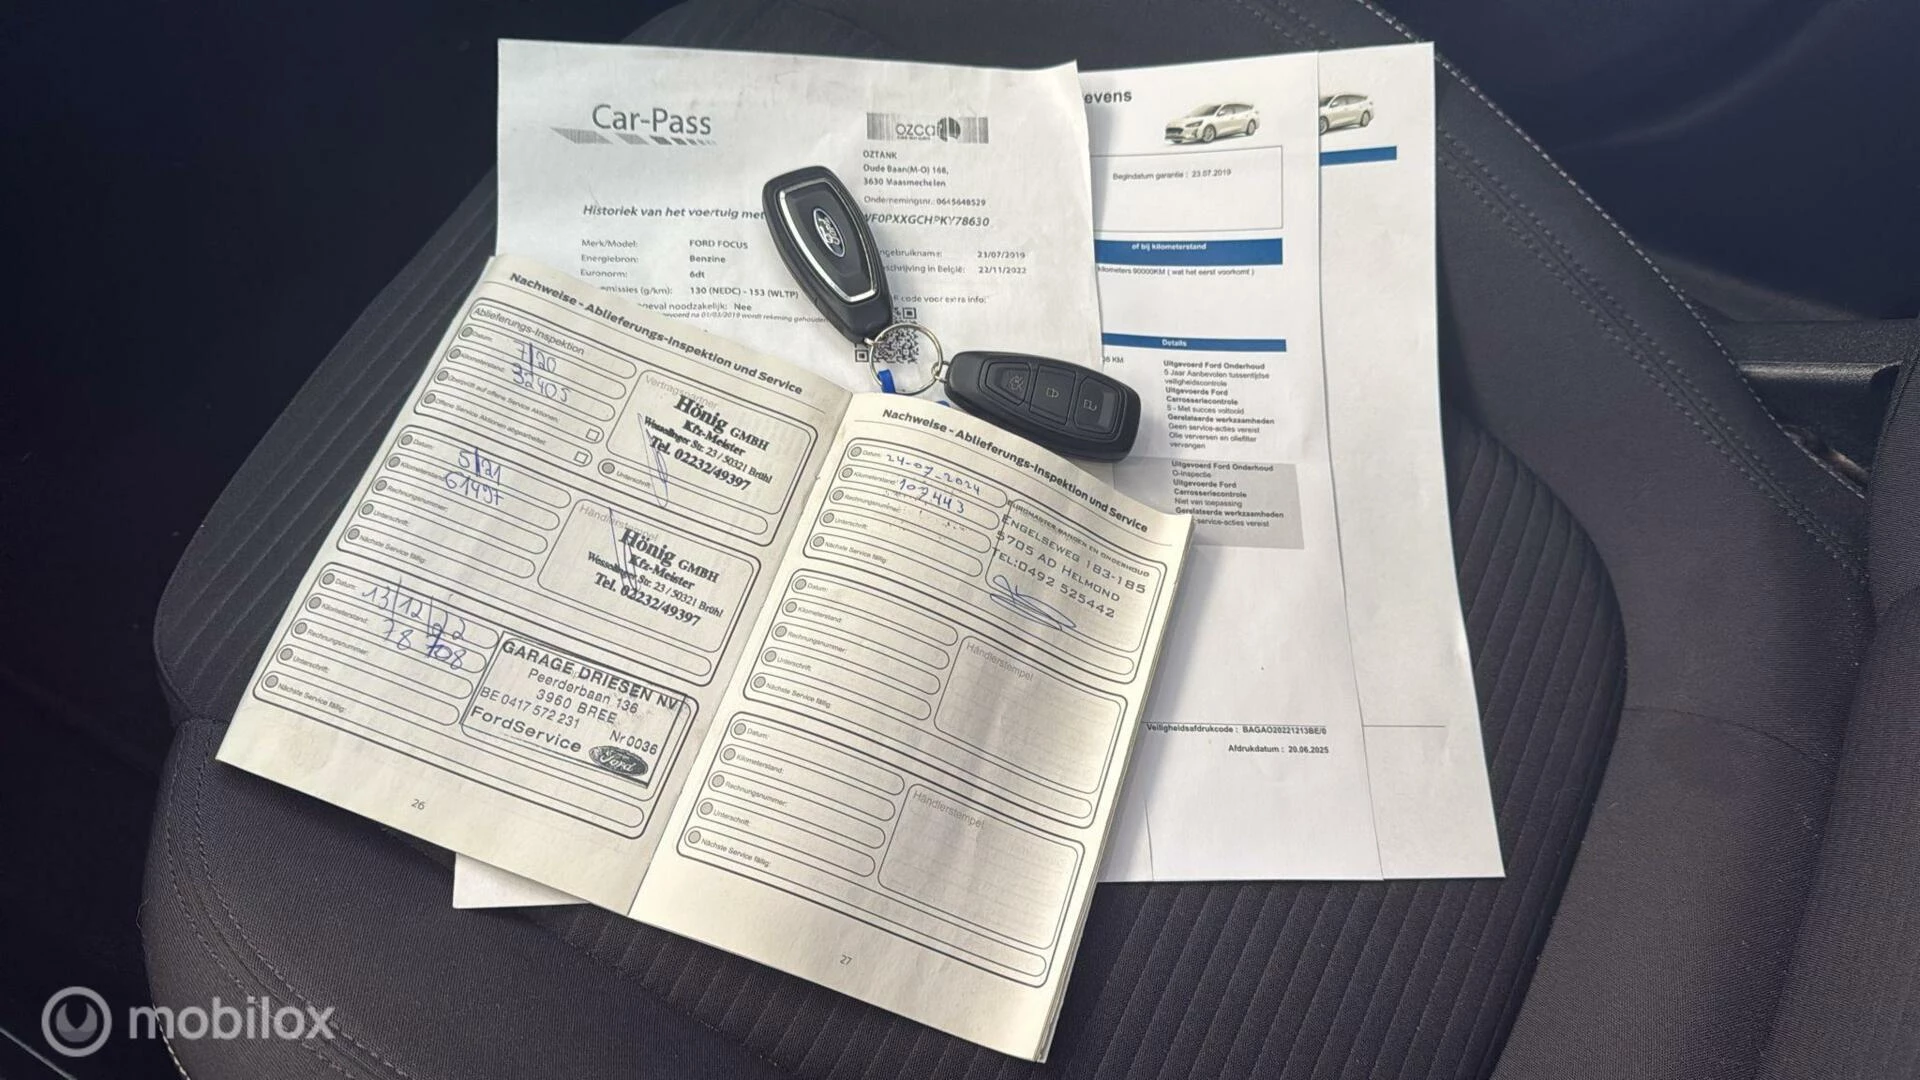 Car-Pass
ozcar
OZTANK
Oude Baan(M-O) 168,
3630 Maasmechelen
Ondernemingsnr.: 0645648529
Historiek van het voertuig met
VF0PXXGCHPKY78630
Merk/Model: FORD FOCUS
Energiebron: Benzine
Euronorm: 6dt
emissies (g/km): 130 (NEDC) - 153 (WLTP)
noodzakelijk: Nee
na 01/03/2019 wordt rekening gehouden
ngebruikname: 23/07/2019
schrijving in België: 22/11/2022
code voor extra info:
evens
Begindatum garantie : 23.07.2019
of bij kilometerstand
kilometers 90000KM ( wat het eerst voorkomt )
Details
KM
Uitgevoerd Ford Onderhoud
5 Jaar Aanbevolen tussentijdse
veiligheidscontrole
Uitgevoerde Ford
Carrosseriecontrole
5 - Met succes voltooid
Gerelateerde werkzaamheden
Geen service-acties vereist
Olie verversen en oliefilter
vervangen
Uitgevoerd Ford Onderhoud
O-inspectie
Uitgevoerde Ford
Carrosseriecontrole
Niet van toepassing
Gerelateerde werkzaamheden
service-acties vereist
Veiligheidsafdrukcode : BAGAO20221213BE/0
Afdrukdatum : 20.06.2025
Nachweise - Ablieferungs-Inspektion und Service
Ablieferungs-Inspektion
Datum: 7/20
Kilometerstand: 32405
Überprüft auf offene Service Aktionen.
Offene Service Aktionen abgearbeitet.
Vertragspartner
Hönig GMBH
Kfz-Meister
Wesselinger Str. 23 / 50321 Brühl
Tel. 02232/49397
Unterschrift:
Datum: 5/21
Kilometerstand: 61497
Rechnungsnummer:
Unterschrift:
Nächste Service fällig:
Händlerstempel
Hönig GMBH
Kfz-Meister
Wesselinger Str. 23 / 50321 Brühl
Tel. 02232/49397
Datum: 13/12/22
Kilometerstand: 78 708
Rechnungsnummer:
Unterschrift:
Nächste Service fällig:
GARAGE DRIESEN NV
Peerderbaan 136
3960 BREE
BE 0417 572 231
Nr 0036
FordService
Ford
26
Nachweise - Ablieferungs-Inspektion und Service
Datum: 24-07-2024
Kilometerstand: 102443
Rechnungsnummer:
Unterschrift:
Nächste Service fällig:
EUROMASTER BANDEN EN ONDERHOUD
ENGELSEWEG 183-185
5705 AD HELMOND
TEL:0492 525442
Datum:
Kilometerstand:
Rechnungsnummer:
Unterschrift:
Nächste Service fällig:
Händlerstempel
Datum:
Kilometerstand:
Rechnungsnummer:
Unterschrift:
Nächste Service fällig:
Händlerstempel
27
mobilox